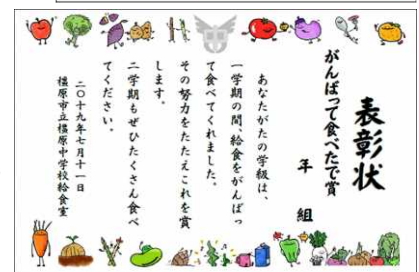 表彰状
がんばって食べたで賞
年 組
あなたがたの学級は、
一学期の間、給食をがんばっ
て食べてくれました。
その努力をたたえこれを賞
します。
二学期もぜひたくさん食べ
てください。
二〇十九年七月十一日
橿原市立橿原中学校給食室